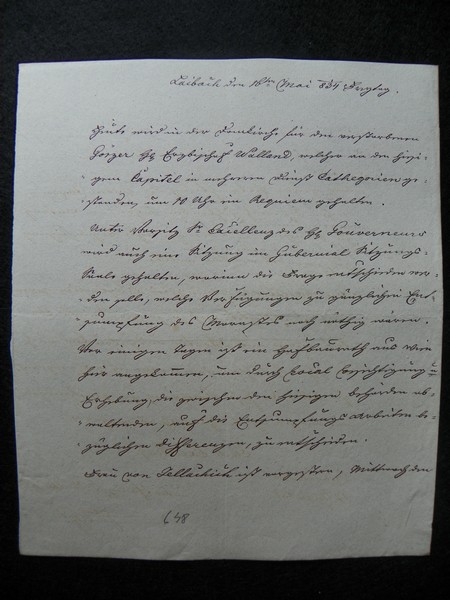 Laibach den 16ten Mai 834 Freytag.
Heute wird in der Domkirche für den verstorbenen
Görzer H: Erzbischof Walland, welcher an den hiesi-
gem Capitel in mehreren Dienst Cathegorien ge-
standen, um 10 Uhr ein Requiem gehalten.
Unter Vorsitz Sr Excellenz des H: Gouverneurs
wird auch eine Sitzung im Gubernial Sitzungs-
Saale gehalten, worinn die Frage entschieden wer-
den solle, welche Verfügungen zu gänzlichen Ent-
sumpfung des Morastes noch nöthig wären.
Vor einigen Tagen ist ein Hofbaurath aus Wien
hier angekommen, um durch Local Besichtigung u
Erhebung, die zwischen den hiesigen Behörden ob-
waltenden, auf die Entsumpfungs Arbeiten be-
züglichen Differenzen, zu entscheiden.
Frau von Jellachich ist vorgestern, Mittwoch den
648